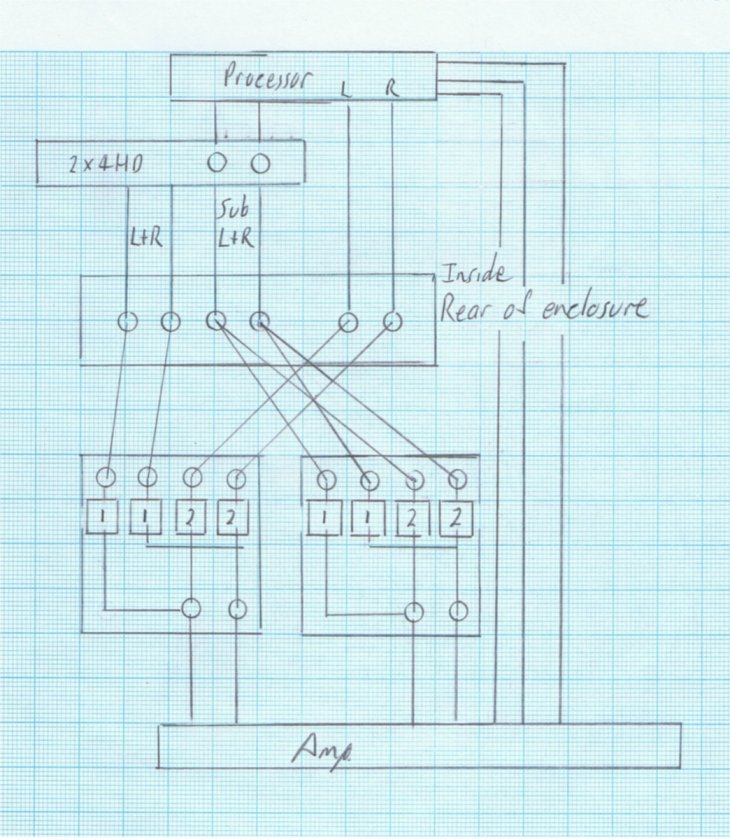 Processor L R
2x4HD
Sub
L+R L+R
Inside
Rear of enclosure
1 1 2 2 1 1 2 2
Amp.